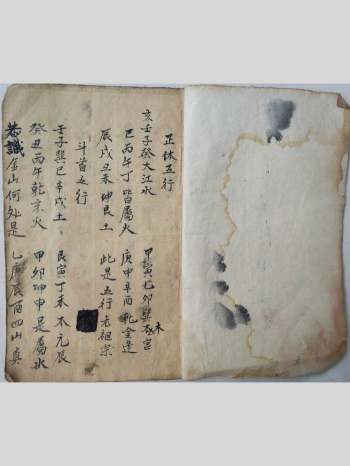 正体五行
亥壬子癸大江水 甲寅乙卯巽木宮
巳丙午丁皆屬火 庚申辛酉乾金逢
辰戌丑未坤艮土 此是五行老祖宗
斗首五行
壬子巽巳辛戌土 艮寅丁未木元辰
癸丑丙午乾亥火 甲卯坤申是屬水
識金山何處是 乙庚辰酉四山真